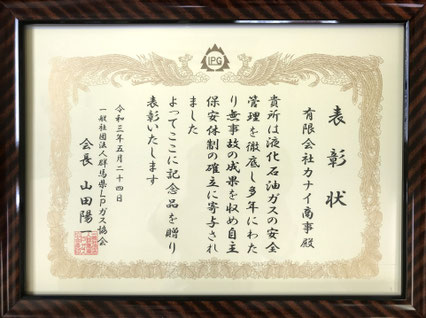 LPG
表彰状
有限会社カナイ商事殿
貴所は液化石油ガスの安全
管理を徹底し多年にわた
り無事故の成果を収め自主
保安体制の確立に寄与され
ました
よってここに記念品を贈り
表彰いたします
令和三年五月二十四日
一般社団法人群馬県LPガス協会
会長 山田陽一